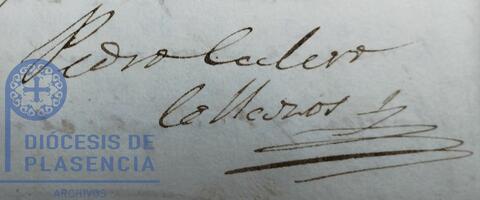 Pedro Calero
Collazos
DIOCESIS DE
PLASENCIA
ARCHIVOS